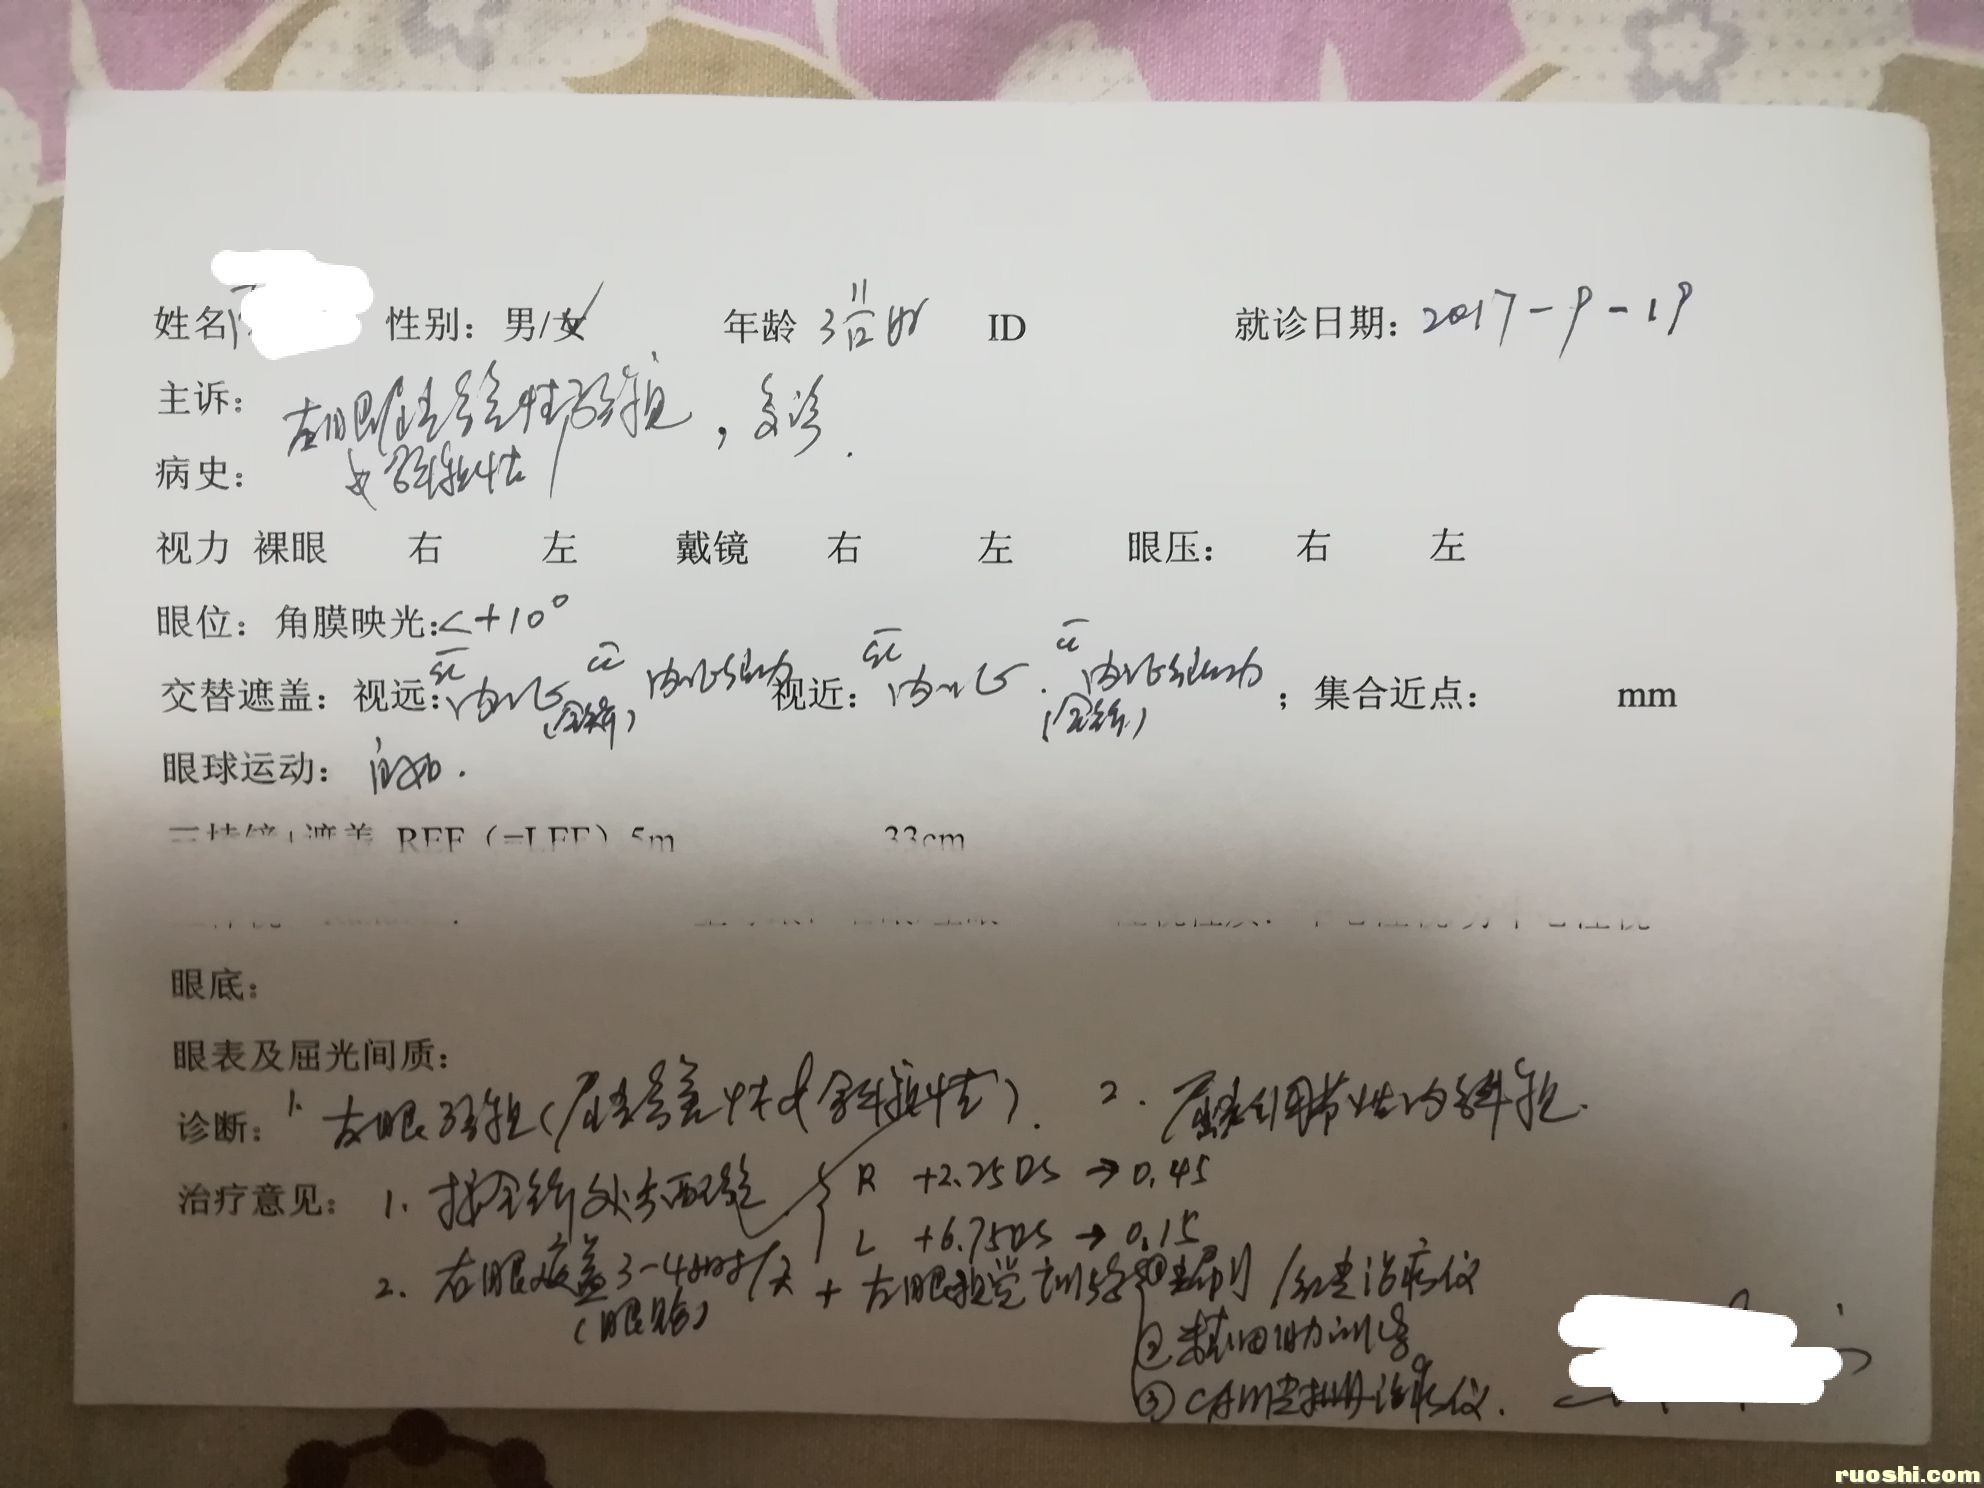 姓名 性别：男/女 年龄 3 11/12 岁 ID 就诊日期：2017-9-19
主诉：左眼屈光参差性弱视，复诊.
病史：及斜视性
视力 裸眼 右 左 戴镜 右 左 眼压： 右 左
眼位：角膜映光：<+10°
交替遮盖：视远：sc 内→正 cc 内→正 (全矫) 视近：sc 内→正. cc 内→正 (全矫) ；集合近点： mm
眼球运动：自如.
三棱镜+遮盖 REF（=LEF）5m 33cm
眼底：
眼表及屈光间质：
诊断：1. 左眼弱视(屈光参差性及斜视性). 2. 屈光调节性内斜视.
治疗意见：1. 按全矫处方配镜 R +2.25DS → 0.45
L +6.75DS → 0.15
2. 右眼遮盖3-4小时/天 + 左眼视觉训练 ①光刷/红光治疗仪
(眼贴)
②精细目力训练
③CAM光栅治疗仪.
ruoshi.com